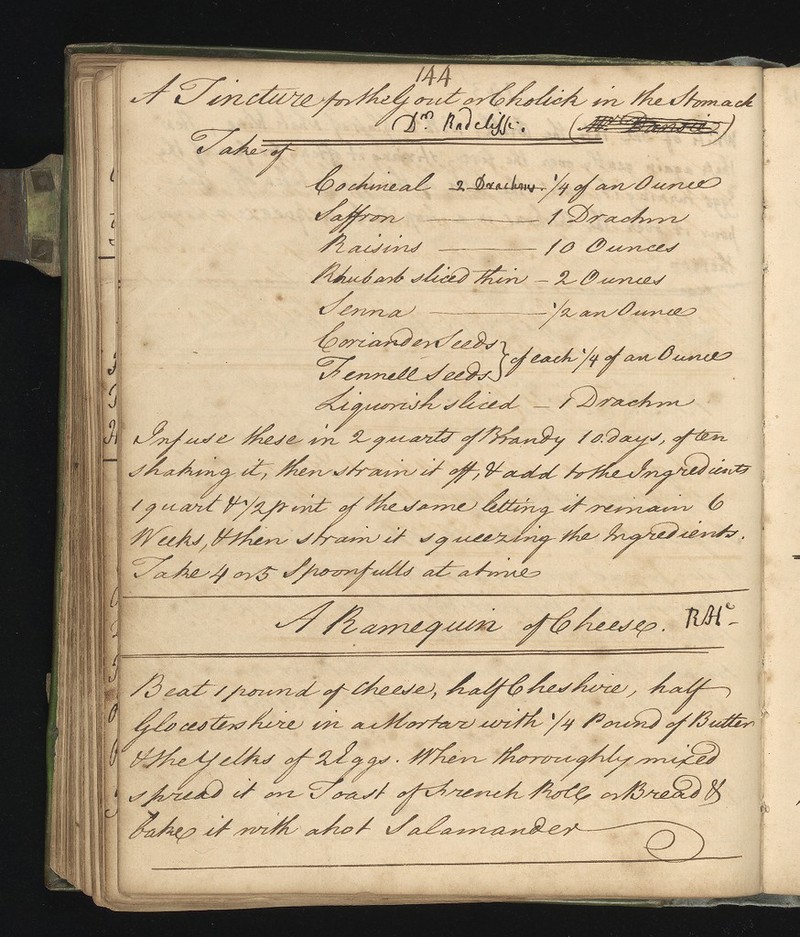 144
A Tincture for the Gout or Cholick in the Stomach
Dr. Radcliffe.
Take of
Cochineal 2 Drachms 1/4 of an Ounce
Saffron 1 Drachm
Raisins 10 Ounces
Rhubarb sliced thin - 2 Ounces
Senna 1/2 an Ounce
Coriander Seeds
Fennell Seeds } of each 1/4 of an Ounce
Liquorish sliced - 1 Drachm
Infuse these in 2 quarts of Brandy 10 days, often
shaking it, then strain it off, & add to the Ingredients
1 quart & 1/2 pint of the same letting it remain 6
Weeks, & then strain it squeezing the Ingredients.
Take 4 or 5 Spoonfulls at a time
A Ramequin of Cheese.
Beat 1 pound of Cheese, half Cheshire, half
Glocestershire in a Mortar with 1/4 Pound of Butter
& the Yelks of 2 Eggs. When thoroughly mixed
spread it on Toast of French Roll or Bread &
bake it with a hot Salamander